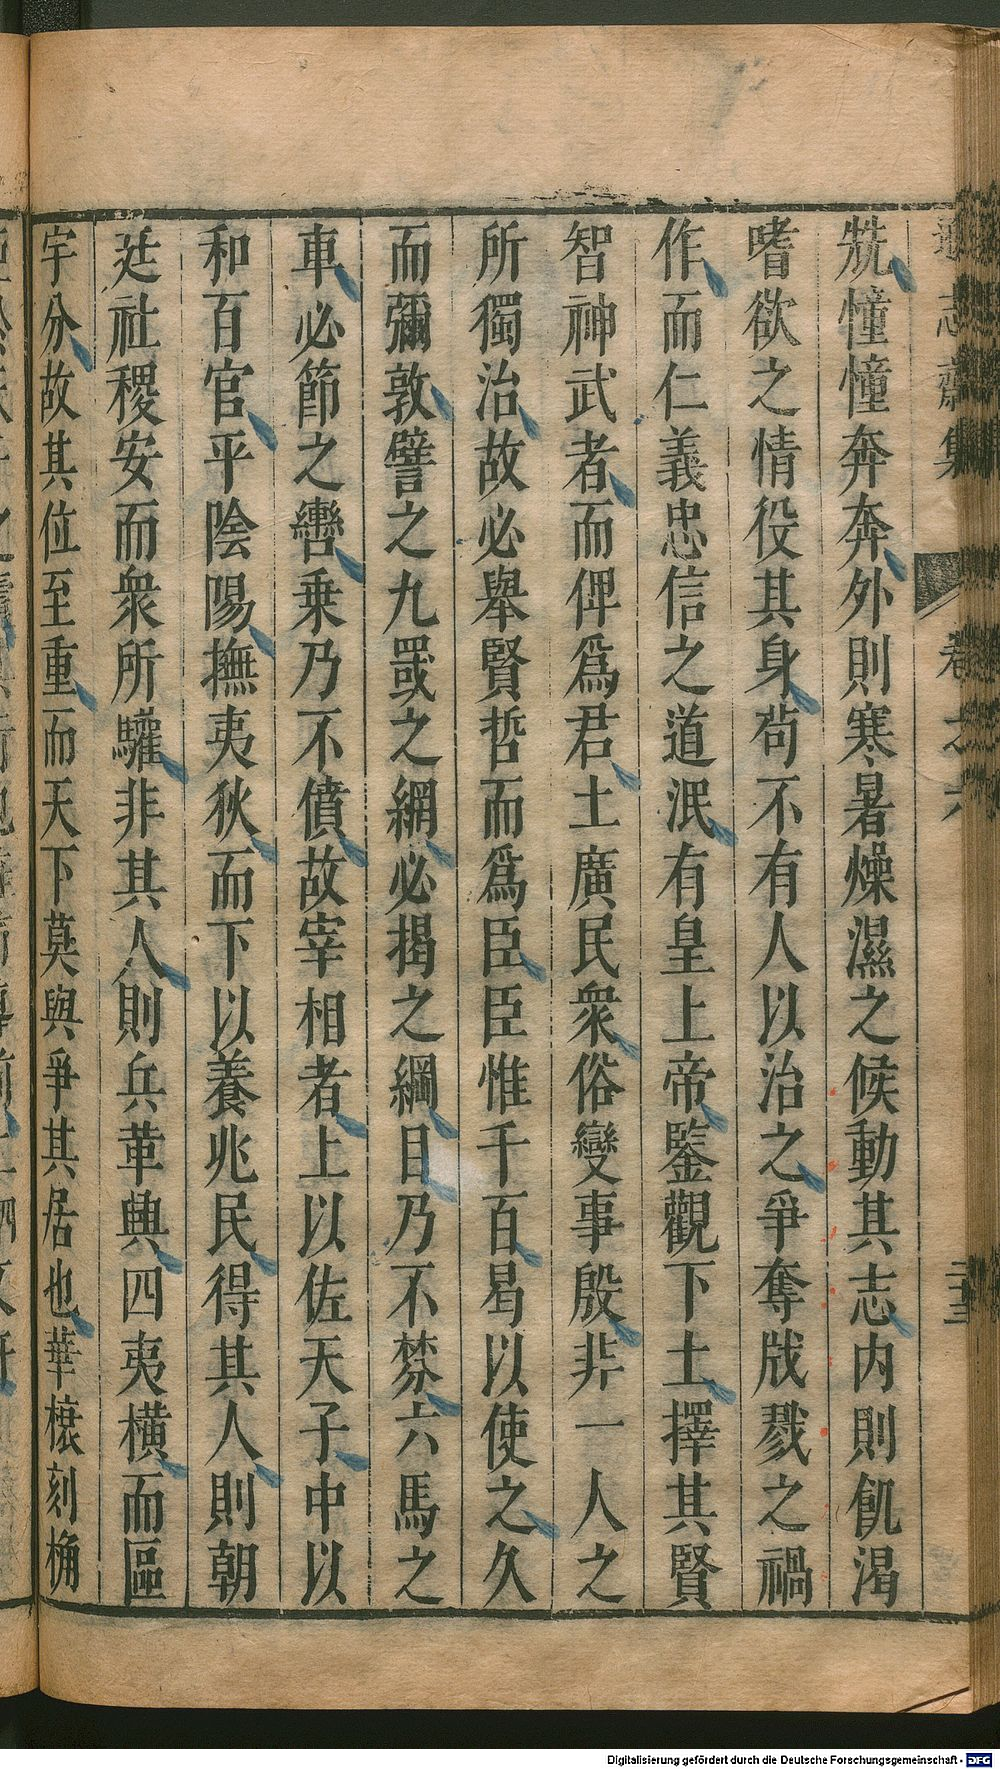 兟憧憧奔奔外則寒暑燥濕之候動其志内則飢渴
嗜欲之情役其身苟不有人以治之爭奪戕戮之禍
作而仁義忠信之道泯有皇上帝鑒觀下土擇其賢
智神武者而俾爲君土廣民衆俗變事殷非一人之
所獨治故必舉賢哲而爲臣臣惟千百曷以使之久
而彌敦譬之九罭之網必揭之綱目乃不棼六馬之
車必節之轡乗乃不僨故宰相者上以佐天子中以
和百官平陰陽撫夷狄而下以養兆民得其人則朝
廷社稷安而衆所驩非其人則兵革興四夷横而區
宇分故其位至重而天下莫與爭其居也華榱刻桷
遜志齋集
卷之六
二十三
Digitalisierung gefördert durch die Deutsche Forschungsgemeinschaft - DFG